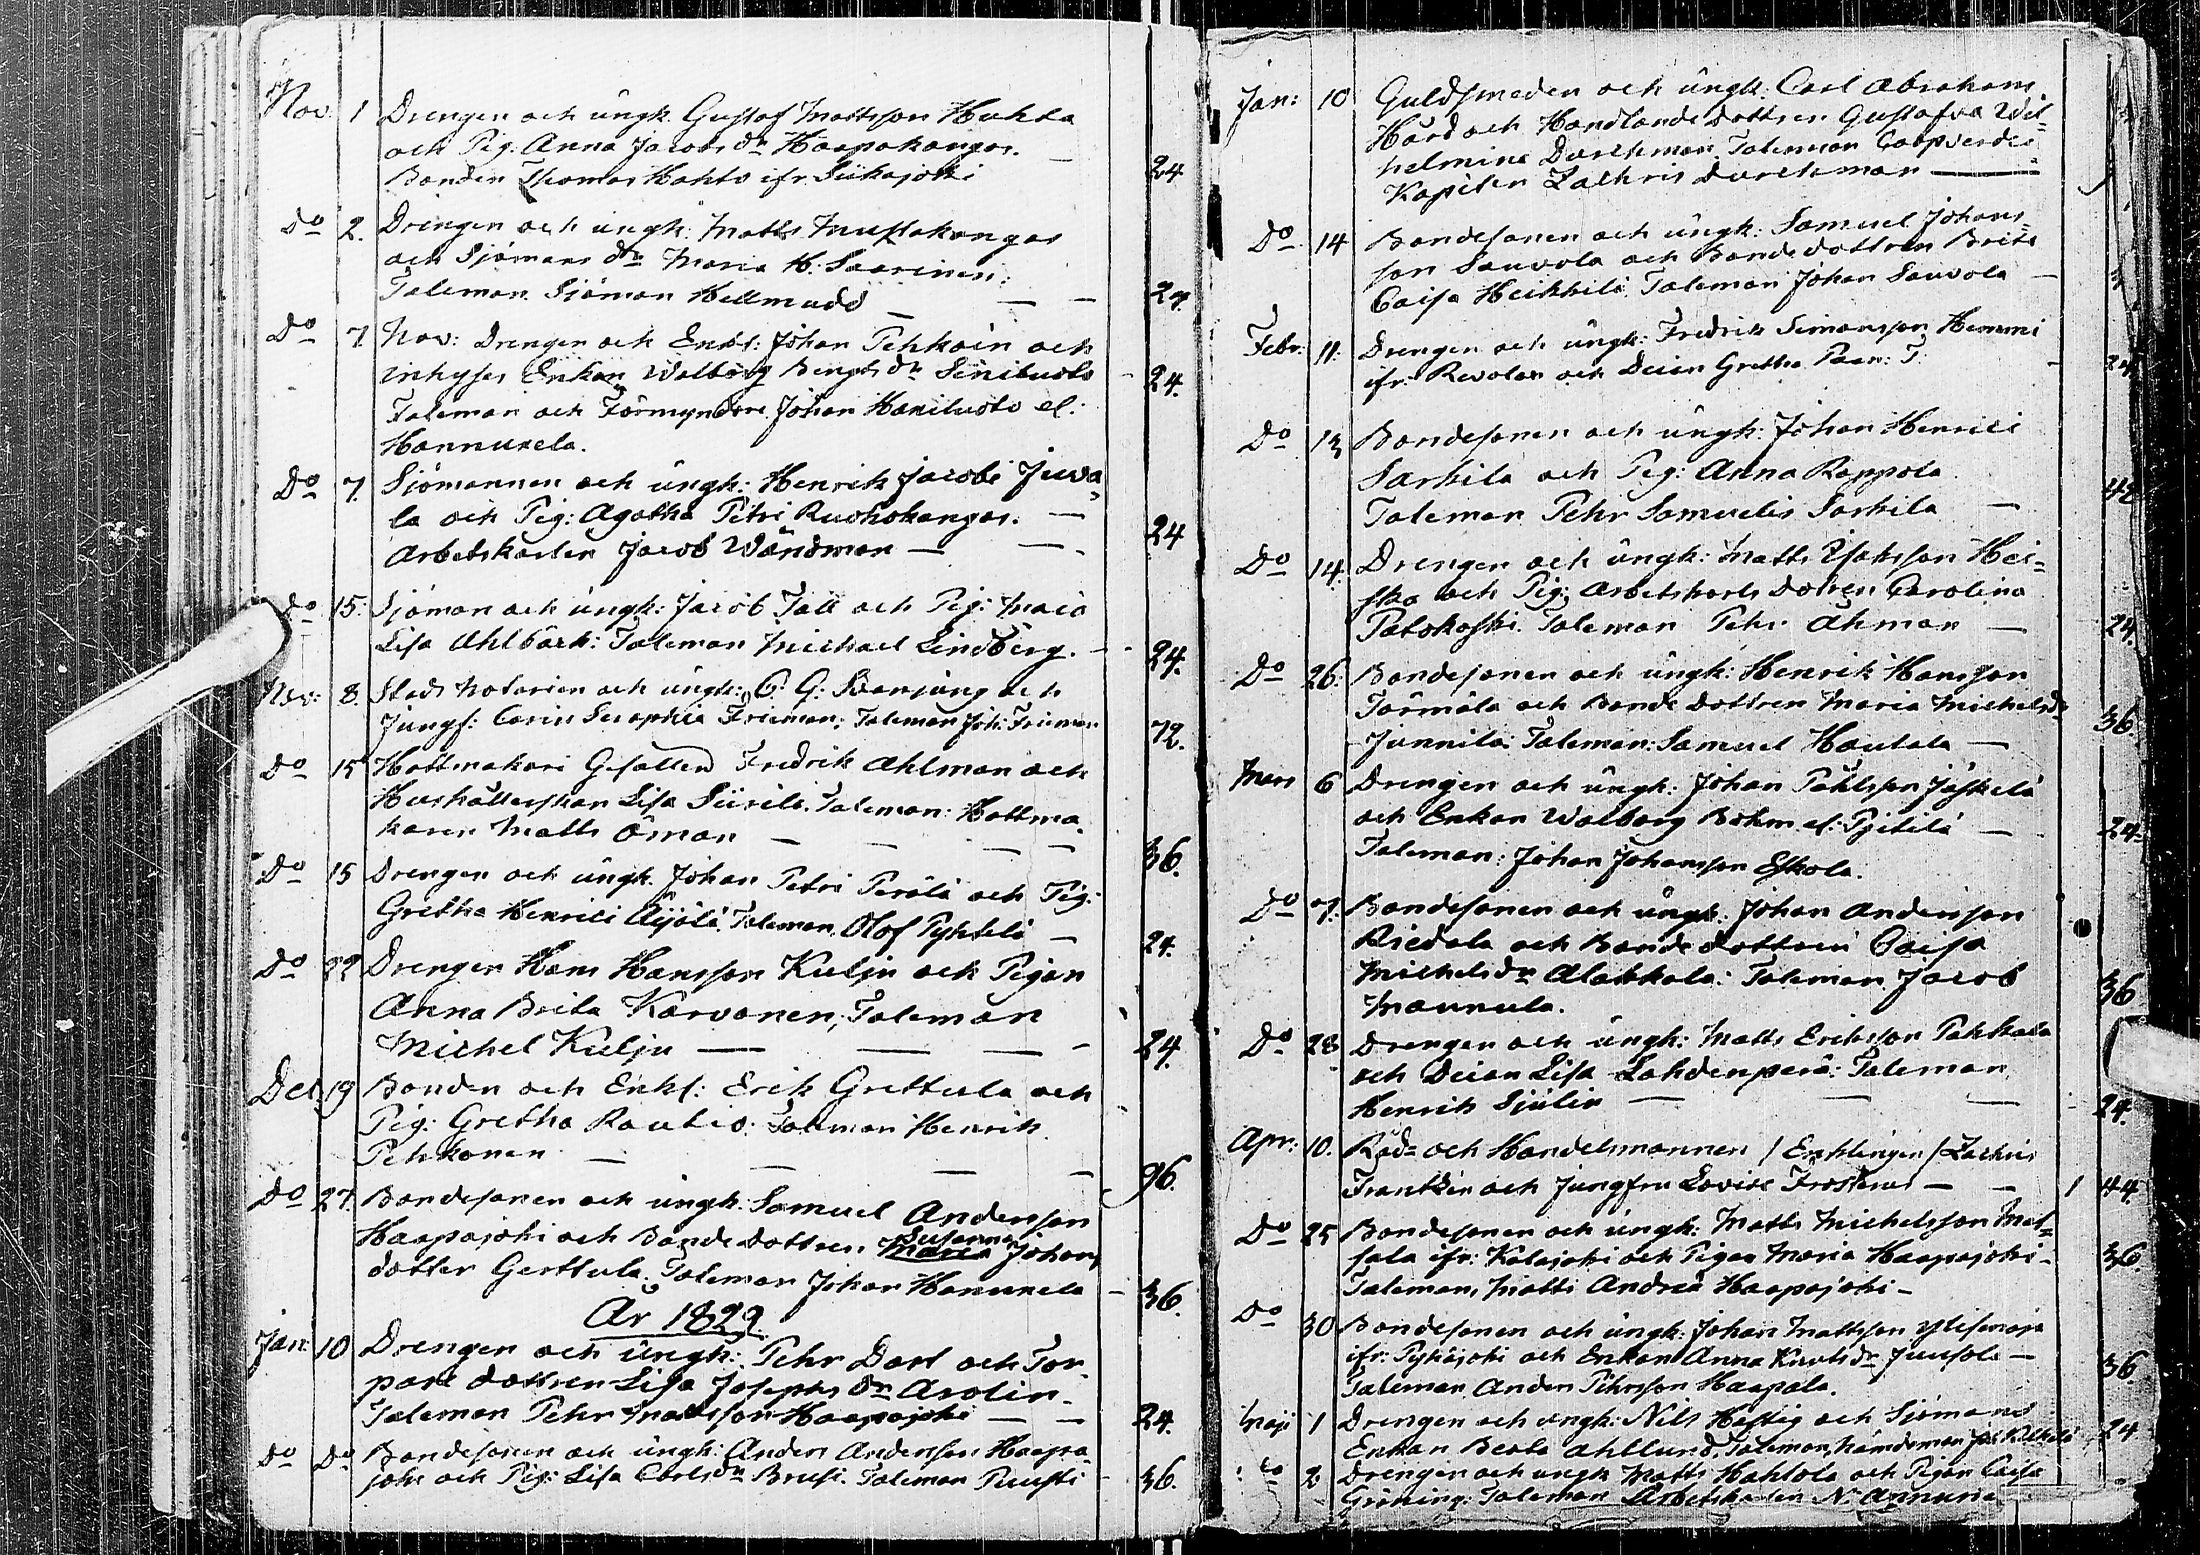 Nov: 1 Drengen och ungk. Gustaf Mattsson Huhta
och Pig. Anna Jacobs dr Haapakangas. —
Bonden Thomas Hahto ifr. Siikajoki 24
Do 2. Drengen och ungk. Matts Mustakangas
och Sjömans dr Maria H. Saarinen:
Taleman Sjöman Hellmudd — — 24.
Do 7. Nov: Drengen och Enkl: Johan Pehkoin och
inhyses Enkan Walborg Bengts dr Siniluoto 24.
Taleman och Förmyndare Johan Haniluoto el.
Hannuxela.
Do 7. Sjömannen och ungk: Henrik Jacobi Juva=
la och Pig: Agatha Petri Ruohokangas. — 24
Arbetskarlen Jacob Wändman — —
Do 15: Sjöman och ungk: Jacob Tall och Pig: Maia
Lisa Ahlbäck: Taleman Michael Lindberg. 24.
Nov: 8. Stads Notarien och ungk: C. G: Svanljung och
Jungf: Carin Seraphia Frieman: Taleman Joh: Frieman 72.
Do 15 Hattmakari Gesällen Fredrik Ahlman och
Hushållerskan Lisa Siirilä. Taleman: Hattma=
karen Matts Öman — — — — 36.
Do 15 Drengen och ungk. Johan Petri Perälä och Pig:
Gretha Henrici Äijälä, Taleman Olof Pyhtilä — 24.
Do 22 Drengen Hans Hansson Kulju och Pigan
Anna Brita Karvonen, Taleman
Michel Kulju — — — 24.
Dec 19 Bonden och Enkl: Erik Grettula och
Pig: Gretha Rautio. Taleman Henrik
Pehkonen — — — — 96.
Do 27. Bondesonen och ungk. Samuel Andersson
Haapajoki och Bonde dottren Maria Susanna Johans
dotter Gerttula. Taleman Johan Hannuxela — 36.
År 1822.
Jan: 10 Drengen och ungk: Pehr Darl och Tor=
pare dottren Lisa Josephs dr Arolin.
Taleman Pehr Mattsson Haapajoki — — 24.
Do Do Bondesonen och ungk: Anders Andersson Haapa=
joki och Pig: Lisa Carls dr Brusi. Taleman Puusti 36.
Jan: 10 Guldsmeden och ungk: Carl Abraham
Hård och Handlande dottren Gustafva Wil=
helmina Durchman. Taleman Coopverdie
Kapiten Zachris Durchman —
Do 14 Bondesonen och ungk: Samuel Johans
son Sauvola och Bonde dottren Brita
Caisa Heikkilä. Taleman Johan Sauvola —
Febr: 11. Drengen och ungk: Fredrik Simonsson Hemmi
ifr: Revolax och Deian Gretha Paan: T: 24
Do 13 Bondesonen och ungk: Johan Henrici
Sarkila och Pig: Anna Rappola
Taleman Pehr Samuelis Sarkila — 48
Do 14. Drengen och ungk: Matts Isaksson Hei=
ska och Pig: Arbetskarls dottren Carolina
Patokoski. Taleman Pehr Åhman — 24.
Do 26: Bondesonen och ungk: Henrik Hansson
Törmälä och Bonde dottren Maria Michels dr
Junnila: Taleman: Samuel Hautala — 36.
Mars 6 Drengen och ungk: Johan Påhlsson Jäskelä
och Enkan Walborg Böhm el: Pjetilä — 24.
Taleman: Johan Johansson Eskola.
Do 7. Bondesonen och ungk: Johan Andersson
Riedala och Bonde dottren Caisa
Michels dr Alakkola: Taleman Jacob
Maunula. 36
Do 28 Drengen och ungk: Matts Eriksson Pakkala
och Deian Lisa Lahdenperä: Taleman
Henrik Sjölin — — — 24.
Apr: 10. Råd= och Handelsmannen / Enklingen / Zachris
Frantzén och Jungfru Lovisa Frosterus — — 1 44
Do 25 Bondesonen och ungk: Matts Michelsson Mat=
sala ifr: Kalajoki och Pigan Maria Haapajoki — 36.
Taleman, Matts Andreä Haapajoki —
Do 30 Bondesonen och ungk: Johan Mattsson
ifr: Pyhäjoki och Enkan Anna Knuts dr Juusola — 36.
Taleman Anders Pehrsson Haapala.
Maji 1 Drengen och ungk: Nils Haftig och Sjömans
Enkan Beata Ahllund, Taleman, Nämdeman 24
Do 2 Drengen och ungk Matts Hahtola och Pigan Caisa
Gröning: Taleman Arbetskarlen N.